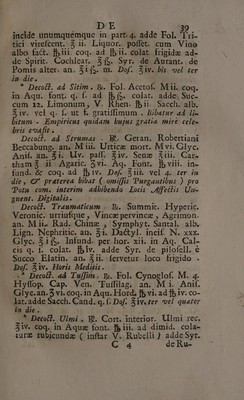 D E 39
incide unumquemque in part. 4. adde Fol. Tri-
tici virescent. ℥ ii. Liquor. posset. cum Vino
albo fact. ℔iii. coq. ad ℔ ii. colat. frigidæ ad-
de Spirit. Cochlear. ℥ i ß. Syr. de Aurant. de
Pomis alter. an. ℥ i ß. m. Dos. ℥ iv. bis vel ter
in die.
* Decoct. ad Sitim. ℞. Fol. Acetos. M ii. coq.
in Aq. font. q. s. ad ℔ iß. colat. adde Suc-
cum 12. Limonum, V. Rhen. ℔ ii Sacch. alb.
℥ iv. vel q. s. ut s. gratissimum. Bibatur ad li-
bitum. Empiricus quidam hujus gratia mire cele-
bris evasit.
Decoct. ad Strumas. ℞. Geran. Robertiani
Beccabung. an. M iii. Urticæ mort. M vi. Glyc.
Anis. an. ℥ i. Uv. pass. ℥ iv. Senæ ℥ iii. Car-
tham ℥ ii Agaric. ℥ vi. Aq. Font. ℔ viii. in-
fund. & coq. ad ℔ iv. Dos. ℥ iii. vel 4. ter in
die, & præterea bibat (omissis Purgantibus) pro
Potu com. interim adhibendo Locis Affectis Un-
guent. Digitalis.
Decoct. Traumaticum. ℞. Summit. Hyperic.
Veronic. utriusque, Vincæ pervincæ, Agrimon.
an. M ii. Rad. Chinæ, Symphyt. Santal. alb.
Lign. Nephritic. an. ℥ i. Dactyl. incis. N. xxx.
Glyc. ℥ i ß. Infund. per hor. xii. in Aq. Cal-
cis q. s. colat. ℔ iv. adde Syr. de pilosell. è
Succo Elatin. an. ℥ ii. servetur loco frigido.
Dos. ℥ iv. Horis Medicis.
* Decoct. ad Tussim. ℞. Fol. Cynoglos. M. 4.
Hyssop. Cap. Ven. Tussilag. an. M i. Anis.
Glyc. an. ℥ vi. coq. in Aqu. Hord. ℔ vi. ad ℔ iv. co-
lat. adde Sacch. Cand. q. s. Dos. ℥ iv. ter vel quater
in die.
* Decoct. Ulmi. ℞. Cort. interior. Ulmi rec.
℥ iv. coq. in Aquæ font. ℔ iii. ad dimid. cola-
turæ rubicundæ ( instar V. Rubelli ) adde Syr.
C 4 de Ru-